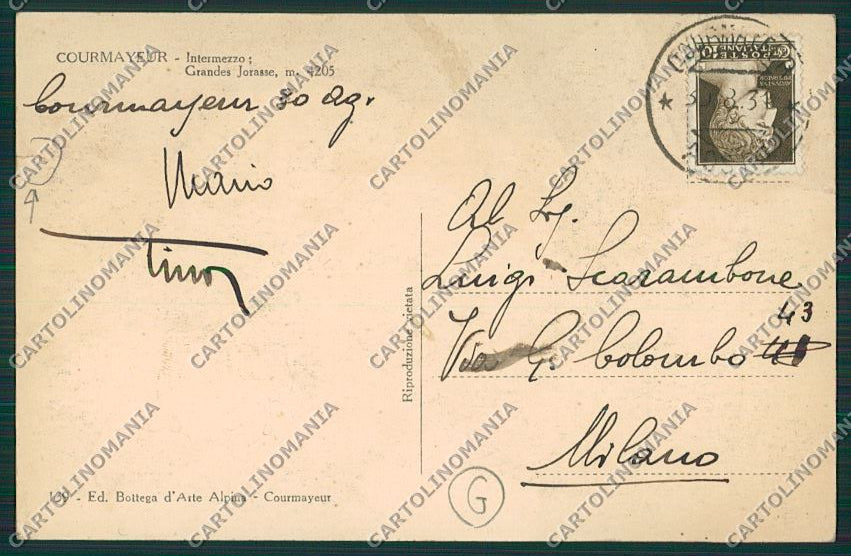 COURMAYEUR - Intermezzo;
Grandes Jorasse, m. 4205
Courmayeur 30 ag.
Mario
Al Sig.
Luigi Scarambone
Via G. Colombo 43
Milano
Riproduzione vietata
139 - Ed. Bottega d'Arte Alpina - Courmayeur
G
POSTE ITALIANE
CARTOLINOMANIA